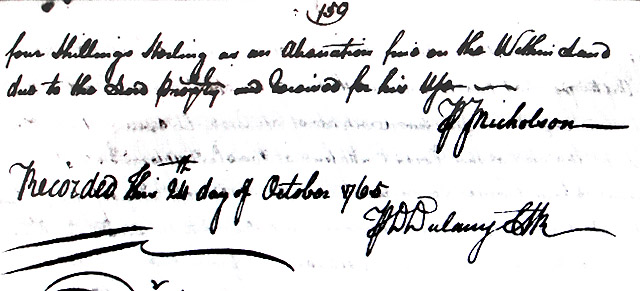 159
four Shillings Sterling as an Alienation fine on the Within Land
due to the Lord Propty and received for his Use
P J Nicholson
Recorded this 24th day of October 1765
P D Dulany Clk